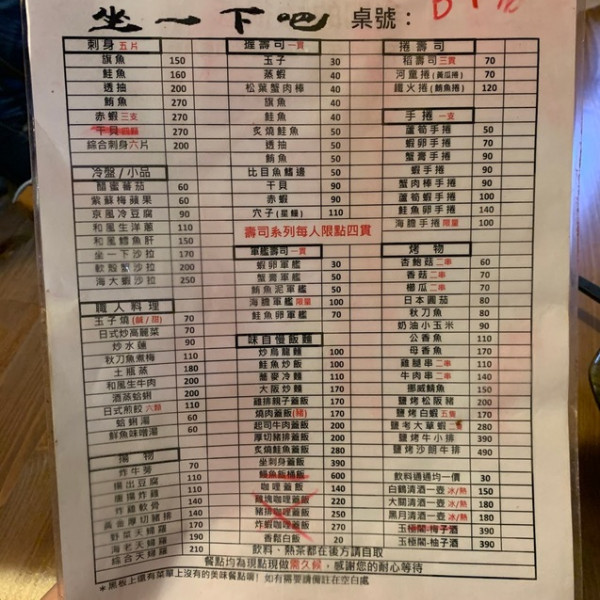 坐一下吧 桌號：
刺身 五片
旗魚 150
鮭魚 160
透抽 200
鮪魚 270
赤蝦 三支 270
干貝 270
綜合刺身 六片 200
冷盤/小品
醋蜜蕃茄 60
紫蘇梅蘋果 60
京風冷豆腐 90
和風生洋蔥 110
和風鱈魚肝 150
坐一下沙拉 170
軟殼蟹沙拉 200
海大蝦沙拉 250
職人料理
玉子燒(鹹/甜) 70
日式炒高麗菜 70
炒水蓮 90
秋刀魚煮梅 110
土瓶蒸 180
和風生牛肉 200
酒蒸蛤蜊 200
日式煎餃 六顆 110
蛤蜊湯 60
鮮魚味噌湯 60
揚物
炸牛蒡 70
揚出豆腐 110
唐揚炸雞 140
炸雞軟骨 140
黃金厚切豬排 170
野菜天婦羅 190
海老天婦羅 210
綜合天婦羅 270
握壽司 一貫
玉子 30
蒸蝦 40
松葉蟹肉棒 40
旗魚 40
鮭魚 40
炙燒鮭魚 50
透抽 50
鮪魚 50
比目魚鰭邊 60
干貝 90
赤蝦 90
穴子(星鰻) 110
壽司系列每人限點四貫
軍艦壽司 一貫
蝦卵軍艦 30
蟹膏軍艦 50
鮪魚泥軍艦 50
海膽軍艦 限量 100
鮭魚卵軍艦 100
味自慢飯麵
炒烏龍麵 100
鮭魚炒飯 100
蕎麥冷麵 110
大阪炒麵 140
雞排親子蓋飯 150
燒肉蓋飯(豬) 170
起司牛肉蓋飯 200
厚切豬排蓋飯 200
炙燒鮭魚蓋飯 280
坐刺身蓋飯 300
鰻魚飯桶飯 600
咖哩蓋飯 140
雞塊咖哩蓋飯 220
豬排咖哩蓋飯 250
炸蝦咖哩蓋飯 270
香鬆白飯 20
捲壽司
稻壽司 三貫 70
河童捲(黃瓜捲) 70
鐵火捲(鮪魚捲) 120
手捲 一支
蘆筍手捲 50
蝦卵手捲 90
蟹膏手捲 90
蝦手捲 90
蟹肉棒手捲 90
蘆筍蝦手捲 100
鮭魚卵手捲 140
海膽手捲 限量 100
烤物
杏鮑菇 二串 60
香菇 二串 70
櫛瓜 二串 70
日本圓茄 80
秋刀魚 80
奶油小玉米 90
公香魚 110
母香魚 170
雞腿串 二串 110
牛肉串 二串 140
挪威鯖魚 150
鹽烤松阪豬 200
鹽烤白蝦 五隻 170
鹽考大草蝦 280
鹽烤牛小排 390
鹽烤沙朗牛排 490
飲料通通均一價 30
白鶴清酒一壺 冰/熱 150
大關清酒一壺 冰/熱 180
黑月清酒一壺 冰/熱 180
玉極閣-梅子酒 390
玉極閣-柚子酒 390
飲料、熱茶都在後方請自取
餐點均為現點現做需久候，感謝您的耐心等待
*黑板上還有菜單上沒有的美味餐點喔! 如有需要請備註在空白處